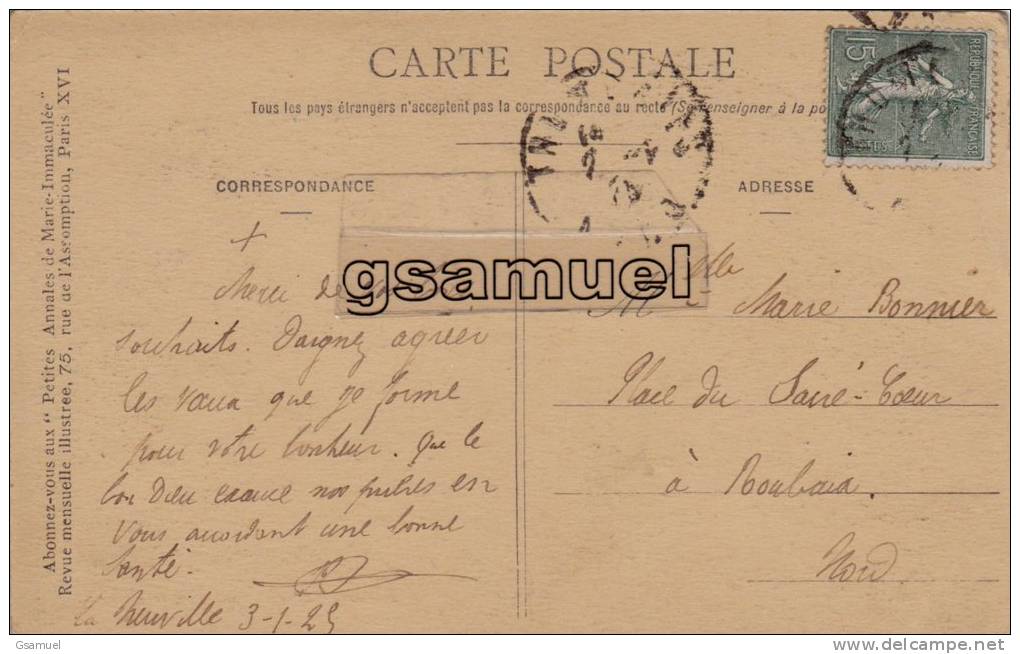 CARTE POSTALE
Tous les pays étrangers n'acceptent pas la correspondance au recto (Se renseigner à la po
15
REPUBLIQUE FRANÇAISE
POSTES
CORRESPONDANCE
ADRESSE
Abonnez-vous aux "Petites Annales de Marie-Immaculée"
Revue mensuelle illustrée, 75, rue de l'Assomption, Paris XVI
gsamuel
+
Merci de
souhaits. Daignez agréer
les vœux que je forme
pour votre bonheur. Que le
bon Dieu exauce nos prières en
vous accordant une bonne
santé.
la Neuville 3-1-25
Melle Marie Bonnier
Place du Sacré-Cœur
à Roubaix.
Nord.
Gsamuel
www.delcampe.net